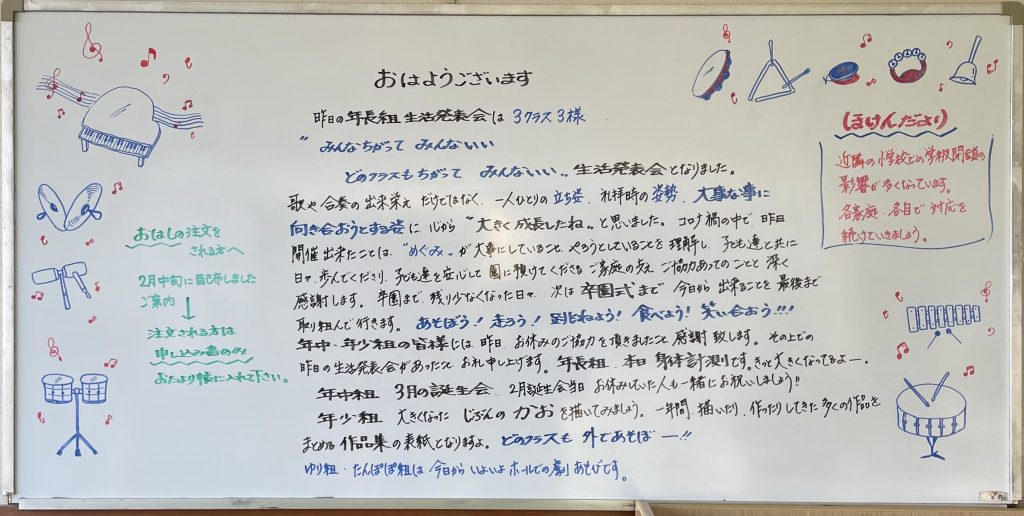 おはようございます
昨日の年長組生活発表会は3クラス3様
"みんなちがって みんないい
どのクラスもちがって みんないい" 生活発表会となりました。
歌や合奏の出来栄えだけではなく、一人ひとりの立ち姿、礼拝時の姿勢、大事な事に
向き合おうとする姿に、心から"大きく成長したね"と思いました。コロナ禍の中で、昨日
開催出来たことは、"めぐみ"が大事にしていること、やろうとしていることを理解し、子ども達と共に
日々歩んでくださり、子ども達を安心して園に預けてくださるご家庭の支え、ご協力あってのことと深く
感謝します。卒園まで残り少なくなった日々、次は卒園式まで今日から出来ることを最後まで
取り組んで行きます。あそぼう!走ろう!跳ねよう!食べよう!笑い合おう!!!
年中・年少組の皆様には昨日、お休みのご協力を頂きましたこと感謝致します。その上での
昨日の生活発表会があったことお礼申し上げます。年長組、本日身体計測です。きっと大きくなってるよー。
年中組 3月の誕生会、2月誕生会当日お休みしていた人も一緒にお祝いしましょう!!
年少組 大きくなった じぶんのかおを描いてみましょう。一年間、描いたり、作ったりしてきた多くの作品を
まとめる作品集の表紙となりますよ。どのクラスも外であそぼー!!
ゆり組・たんぽぽ組は今日からいよいよホールでの劇あそびです。
おはしの注文を
される方へ
2月中旬に配布しました
ご案内
↓
注文される方は
申し込み書のみ
おたより帳に入れて下さい。
ほけんだより
近隣の小学校での学校閉鎖の
影響が多くなっています。
各家庭、各自で対応を
続けていきましょう。